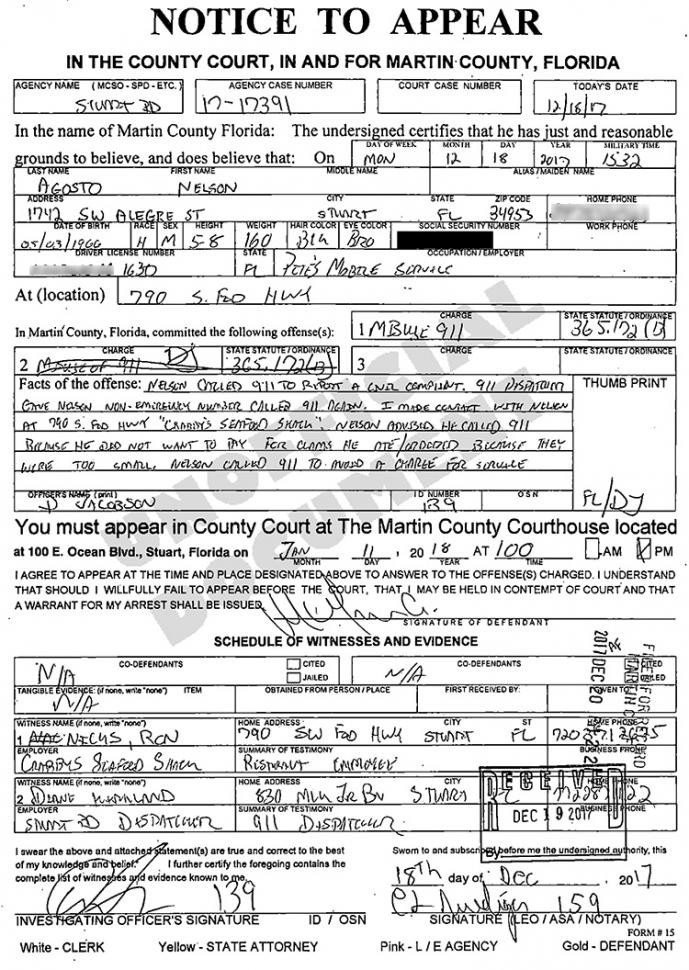 NOTICE TO APPEAR
IN THE COUNTY COURT, IN AND FOR MARTIN COUNTY, FLORIDA
AGENCY NAME (MCSO - SPD - ETC.) AGENCY CASE NUMBER COURT CASE NUMBER TODAY'S DATE
STUART PD 17-17391 12/18/17
In the name of Martin County Florida: The undersigned certifies that he has just and reasonable
DAY OF WEEK MONTH DAY YEAR MILITARY TIME
grounds to believe, and does believe that: On MON 12 18 2017 1532
LAST NAME FIRST NAME MIDDLE NAME ALIAS/MAIDEN NAME
AGOSTO NELSON
ADDRESS CITY STATE ZIP CODE HOME PHONE
1742 SW ALEGRE ST STUART FL 34953
DATE OF BIRTH RACE SEX HEIGHT WEIGHT HAIR COLOR EYE COLOR SOCIAL SECURITY NUMBER WORK PHONE
05/03/1966 H M 5-8 160 BLK BRO
DRIVER LICENSE NUMBER STATE OCCUPATION/EMPLOYER
1630 FL PETE'S MOBILE SERVICE
At (location) 790 S. FED HWY
CHARGE STATE STATUTE / ORDINANCE
In Martin County, Florida, committed the following offense(s): 1 MISUSE 911 365.172(13)
CHARGE STATE STATUTE / ORDINANCE CHARGE STATE STATUTE / ORDINANCE
2 MISUSE OF 911 365.172(13) 3
Facts of the offense: NELSON CALLED 911 TO REPORT A CIVIL COMPLIANT. 911 DISPATCH THUMB PRINT
GAVE NELSON NON-EMERGENCY NUMBER CALLED 911 AGAIN. I MADE CONTACT WITH NELSON
AT 790 S. FED HWY "CRABBY'S SEAFOOD SHACK". NELSON ADVISED HE CALLED 911
BECAUSE HE DID NOT WANT TO PAY FOR CLAMS HE ATE/ORDERED BECAUSE THEY
WERE TOO SMALL. NELSON CALLED 911 TO AVOID A CHARGE FOR SERVICE
OFFICER'S NAME (print) ID NUMBER OSN
D JACOBSON 139 FL/DJ
You must appear in County Court at The Martin County Courthouse located
at 100 E. Ocean Blvd., Stuart, Florida on JAN 11, 2018 AT 100 AM PM
MONTH DAY YEAR TIME
I AGREE TO APPEAR AT THE TIME AND PLACE DESIGNATED ABOVE TO ANSWER TO THE OFFENSE(S) CHARGED. I UNDERSTAND
THAT SHOULD I WILLFULLY FAIL TO APPEAR BEFORE THE COURT, THAT I MAY BE HELD IN CONTEMPT OF COURT AND THAT
A WARRANT FOR MY ARREST SHALL BE ISSUED.
SIGNATURE OF DEFENDANT
UNOFFICIAL
DOCUMENT
SCHEDULE OF WITNESSES AND EVIDENCE
CO-DEFENDANTS CITED CO-DEFENDANTS CITED
N/A JAILED N/A JAILED
TANGIBLE EVIDENCE: (if none, write "none") ITEM OBTAINED FROM PERSON / PLACE FIRST RECEIVED BY: GIVEN TO
N/A
2017 DEC 20
WITNESS NAME (if none, write "none") HOME ADDRESS CITY ST HOME PHONE
1 RON 790 SW FED HWY STUART FL
EMPLOYER SUMMARY OF TESTIMONY BUSINESS PHONE
CRABBYS SEAFOOD SHACK RESTAURANT EMPLOYEE
WITNESS NAME (if none, write "none") HOME ADDRESS CITY
2 DIANE 830 MLK JR BV STUART
EMPLOYER SUMMARY OF TESTIMONY BUSINESS PHONE
STUART PD DISPATCHER 911 DISPATCHER
RECEIVED
DEC 19 2017
By
I swear the above and attached statement(s) are true and correct to the best
of my knowledge and belief. I further certify the foregoing contains the
complete list of witnesses and evidence known to me.
139
INVESTIGATING OFFICER'S SIGNATURE ID / OSN
Sworn to and subscribed before me the undersigned authority, this
18th day of Dec 2017
159
SIGNATURE (LEO / ASA / NOTARY)
FORM # 15
White - CLERK Yellow - STATE ATTORNEY Pink - L / E AGENCY Gold - DEFENDANT